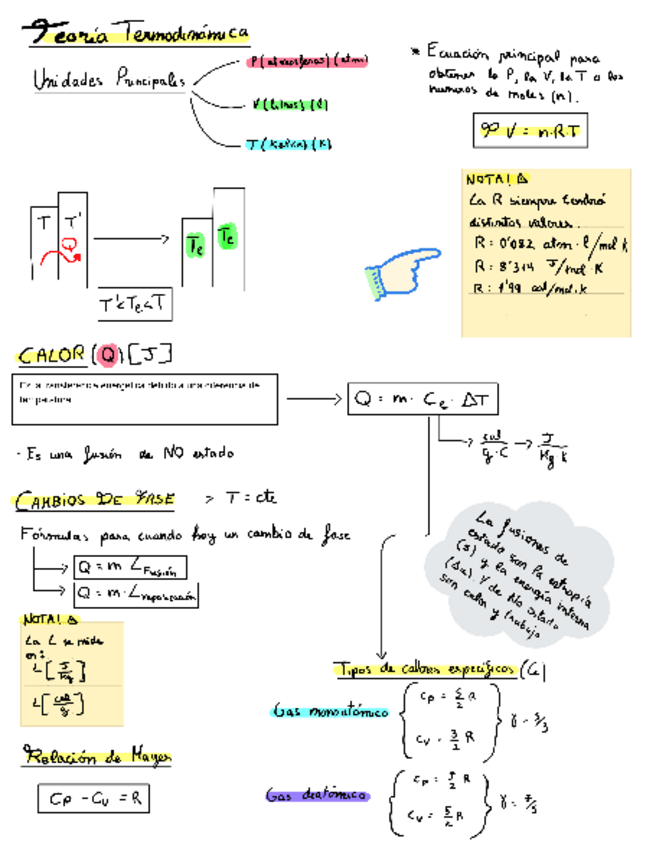 Teoría Termodinámica
Unidades Principales
P (atmosferas) (atm)
V (litros) (l)
T (Kelvin) (K)
* Ecuación principal para
obtener la P, la V, la T o los
numeros de moles (n).
P V = n·R·T
NOTA!
La R siempre tendrá
distintos valores.
R = 0'082 atm·l/mol k
R = 8'314 J/mol·K
R: 1'99 cal/mol·k
T T'
Q
Te Te
T'<Te<T
CALOR (Q) [J]
Es la transferencia energética debido a una diferencia de
temperatura
Q = m· Ce · ΔT
cal/g·C → J/Kg k
· Es una fusión de NO estado
CAMBIOS DE FASE > T = cte
Fórmulas para cuando hay un cambio de fase
Q = m L Fusión
Q = m·L vaporización
NOTA!
La L se mide
en:
L [J/Kg]
L [cal/g]
La fusiones de
estado son la entropía
(s) y la energía interna
(Δu). Y de No estado
son calor y trabajo
Tipos de calores específicos (Ce)
Gas monoatómico
Cp = 5/2 R
Cv = 3/2 R
γ = 5/3
Relación de Mayer
Cp - Cv = R
Gas diatómico
Cv = 5/2 R
γ = 7/5